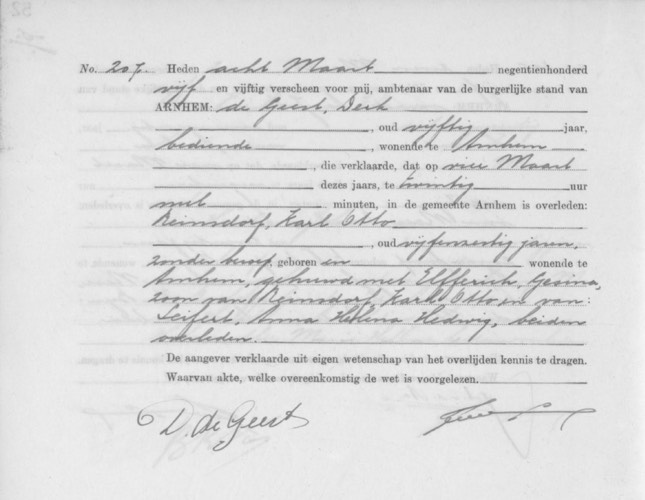 No. 207. Heden acht Maart negentienhonderd
vijf en vijftig verscheen voor mij, ambtenaar van de burgerlijke stand van
ARNHEM: de Geest, Derk
, oud vijftig jaar,
bediende, wonende te Arnhem
, die verklaarde, dat op vier Maart
dezes jaars, te twintig uur
met minuten, in de gemeente Arnhem is overleden:
Reinsdorf, Karl Otto
, oud vijfenzestig jaren,
zonder beroep, geboren en wonende te
Arnhem, gehuwd met Elfferich, Gesina,
zoon van Reinsdorf, Karl Otto en van:
Seifert, Anna Helena Hedwig, beiden
overleden.
De aangever verklaarde uit eigen wetenschap van het overlijden kennis te dragen.
Waarvan akte, welke overeenkomstig de wet is voorgelezen.
D. de Geest